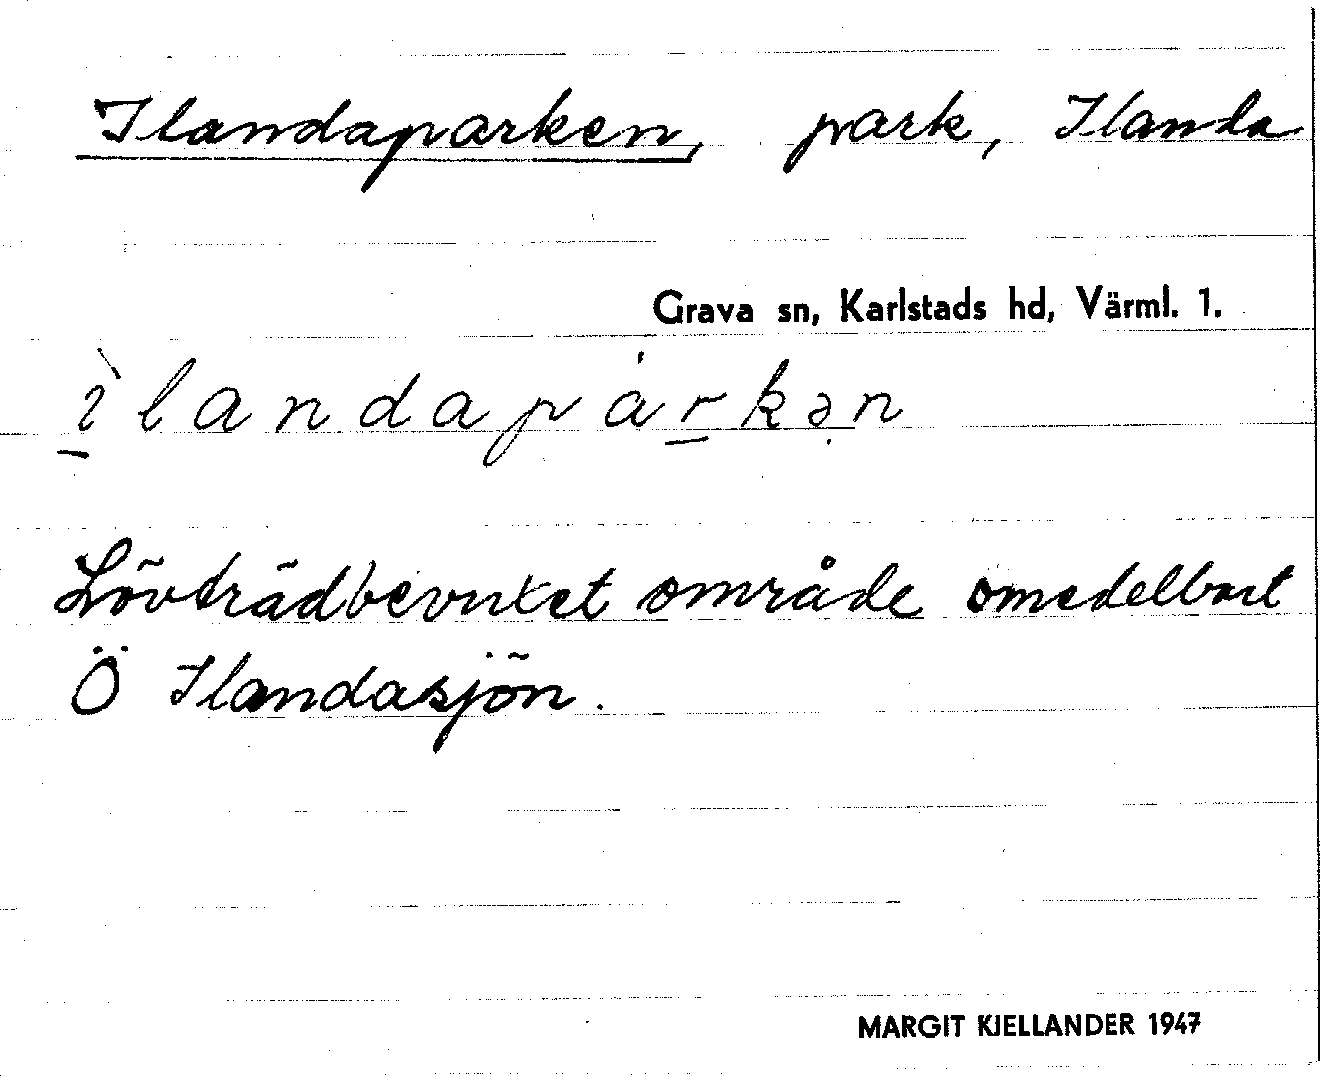 Ilandaparken, park, Ilanda
Grava sn, Karlstads hd, Värml. 1.
ì̱landapárkən
Lövträdbevuxet område omedelbart
Ö Ilandasjön.
MARGIT KJELLANDER 1947